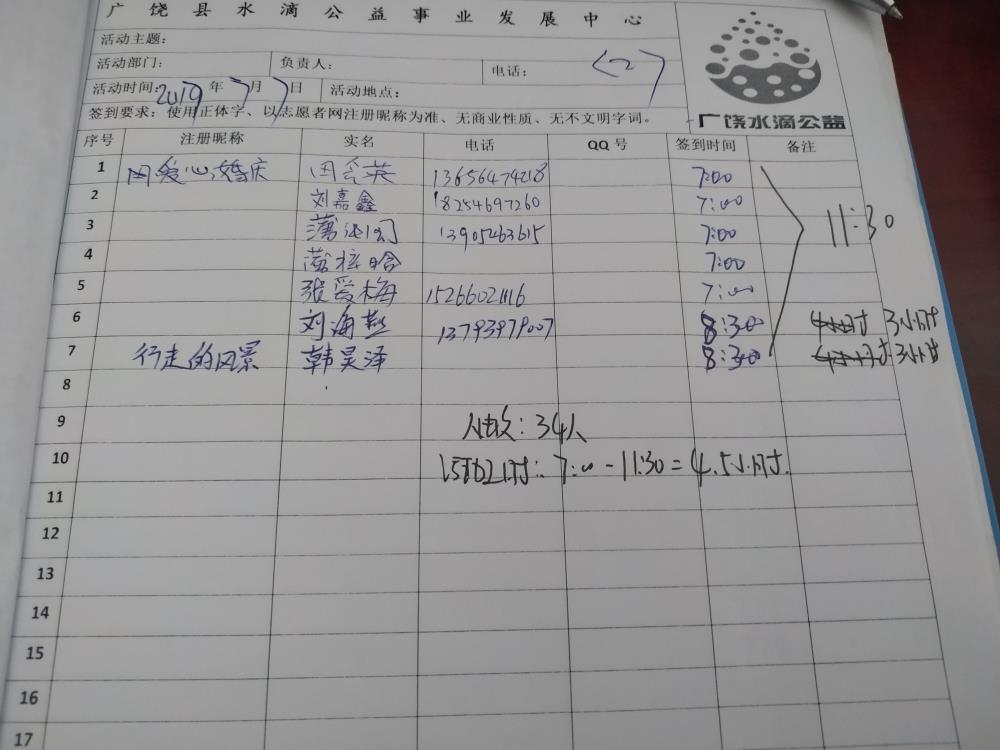 广饶县水滴公益事业发展中心
活动主题：
活动部门： 负责人： 电话： <2>
活动时间：2019年7月7日 活动地点：
签到要求：使用正体字、以志愿者网注册昵称为准、无商业性质、无不文明字词。
广饶水滴公益
序号 注册昵称 实名 电话 QQ号 签到时间 备注
1 爱心婚庆 13656474218 7:00
2 刘嘉鑫 18254697260 7:00
11:30
3 13905463615 7:00
4 7:00
5 张爱梅 15266021116 7:00
6 刘海燕 13793979007 8:30 3小时
7 行走的风景 韩昊泽 8:30 3小时
8
9 人数：34人
10 时：7:00-11:30=4.5小时.
11
12
13
14
15
16
17